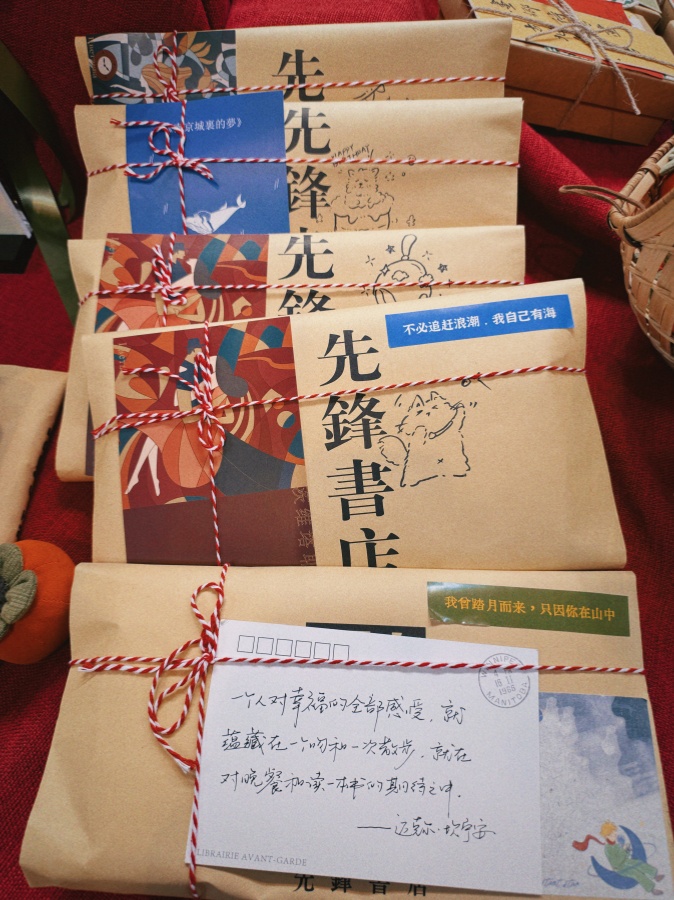 先
京城裏的夢》
先鋒
HAPPY BIRTHDAY
先鋒
不必追赶浪潮．我自己有海
先鋒書店
我曾踏月而来，只因你在山中
MANITOBA
一个人对幸福的全部感受，就
蕴藏在一个吻和一次散步，就在
对晚餐和读一本书的期待之中.
——迈克尔·坎宁安
LIBRAIRIE AVANT-GARDE
先鋒書店